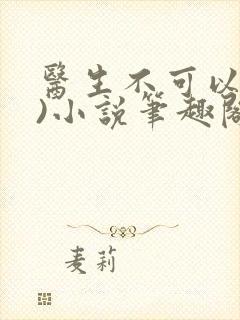 醫生不可以
)小說筆趣閣
麦莉